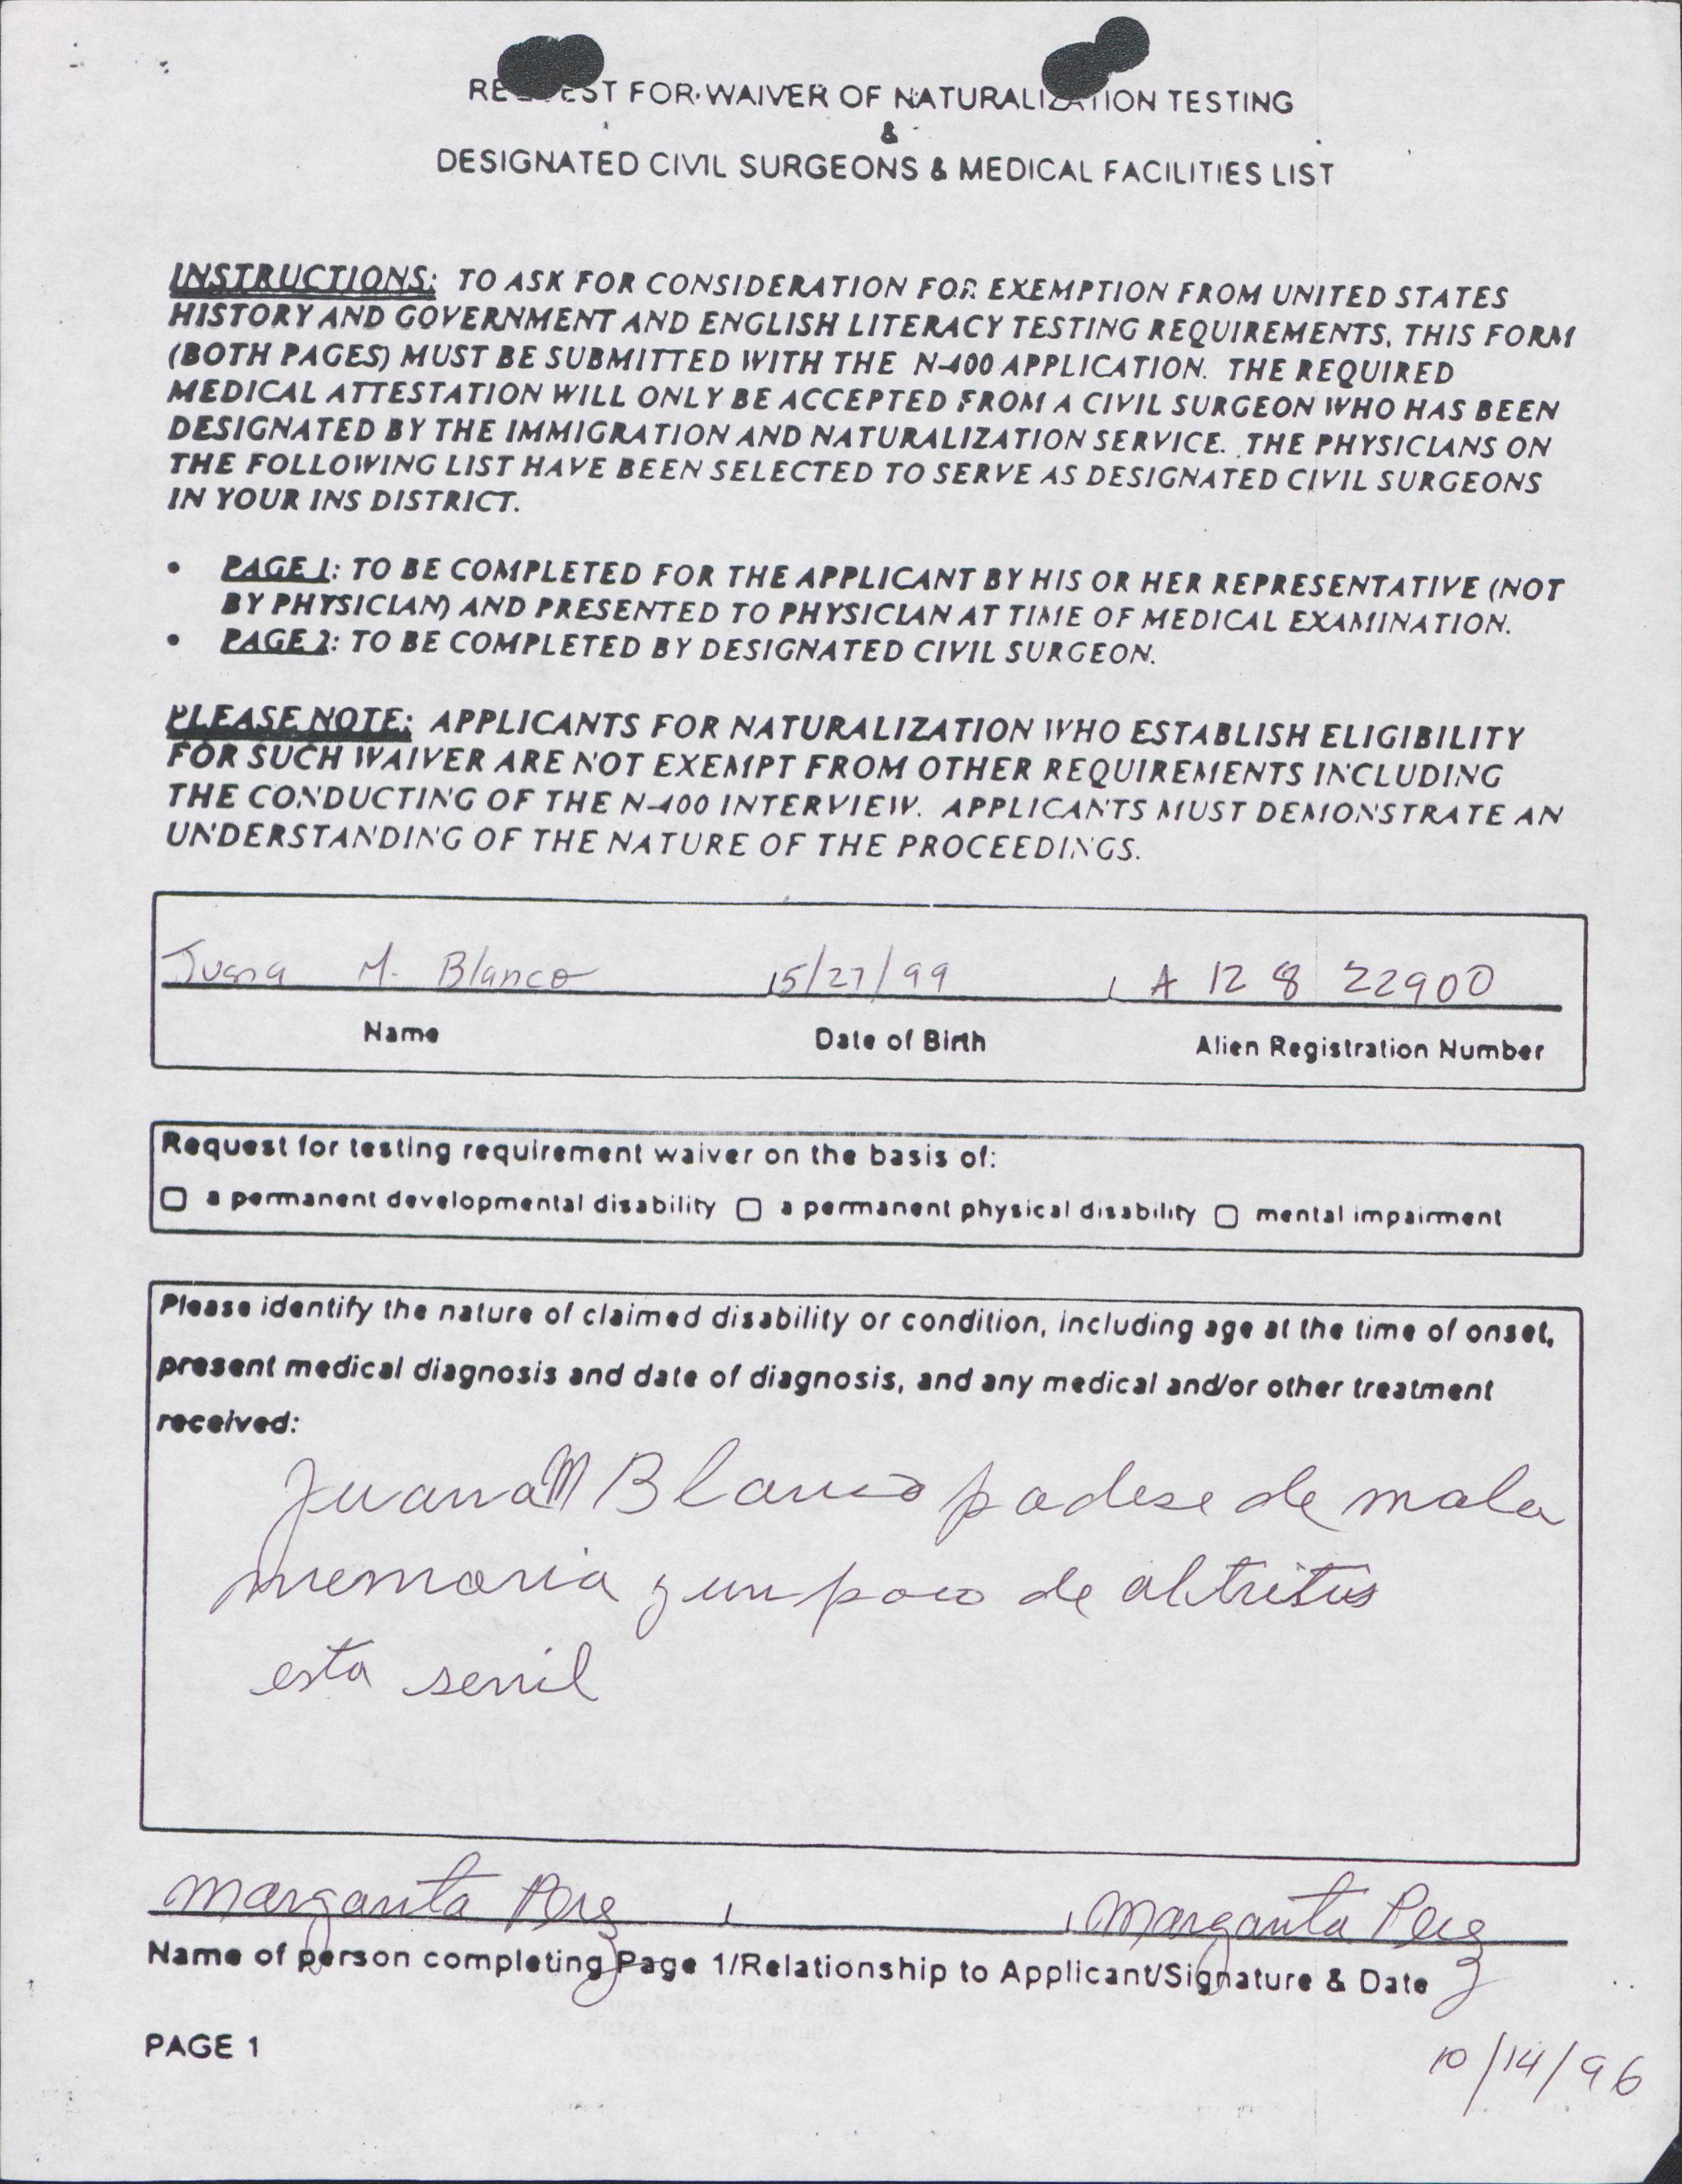 REQUEST FOR WAIVER OF NATURALIZATION TESTING
&
DESIGNATED CIVIL SURGEONS & MEDICAL FACILITIES LIST
INSTRUCTIONS: TO ASK FOR CONSIDERATION FOR EXEMPTION FROM UNITED STATES
HISTORY AND GOVERNMENT AND ENGLISH LITERACY TESTING REQUIREMENTS, THIS FORM
(BOTH PAGES) MUST BE SUBMITTED WITH THE N-400 APPLICATION. THE REQUIRED
MEDICAL ATTESTATION WILL ONLY BE ACCEPTED FROM A CIVIL SURGEON WHO HAS BEEN
DESIGNATED BY THE IMMIGRATION AND NATURALIZATION SERVICE. THE PHYSICIANS ON
THE FOLLOWING LIST HAVE BEEN SELECTED TO SERVE AS DESIGNATED CIVIL SURGEONS
IN YOUR INS DISTRICT.
• PAGE 1: TO BE COMPLETED FOR THE APPLICANT BY HIS OR HER REPRESENTATIVE (NOT
BY PHYSICIAN) AND PRESENTED TO PHYSICIAN AT TIME OF MEDICAL EXAMINATION.
• PAGE 2: TO BE COMPLETED BY DESIGNATED CIVIL SURGEON.
PLEASE NOTE: APPLICANTS FOR NATURALIZATION WHO ESTABLISH ELIGIBILITY
FOR SUCH WAIVER ARE NOT EXEMPT FROM OTHER REQUIREMENTS INCLUDING
THE CONDUCTING OF THE N-400 INTERVIEW. APPLICANTS MUST DEMONSTRATE AN
UNDERSTANDING OF THE NATURE OF THE PROCEEDINGS.
Juana M. Blanco 5/27/99 A 12 8 22900
Name Date of Birth Alien Registration Number
Request for testing requirement waiver on the basis of:
a permanent developmental disability a permanent physical disability mental impairment
Please identify the nature of claimed disability or condition, including age at the time of onset,
present medical diagnosis and date of diagnosis, and any medical and/or other treatment
received:
Juana M Blanco padese de mala
memoria y un poco de altritus
esta senil
Margarita Perez , , Margarita Perez
Name of person completing Page 1/Relationship to Applicant/Signature & Date
PAGE 1
10/14/96